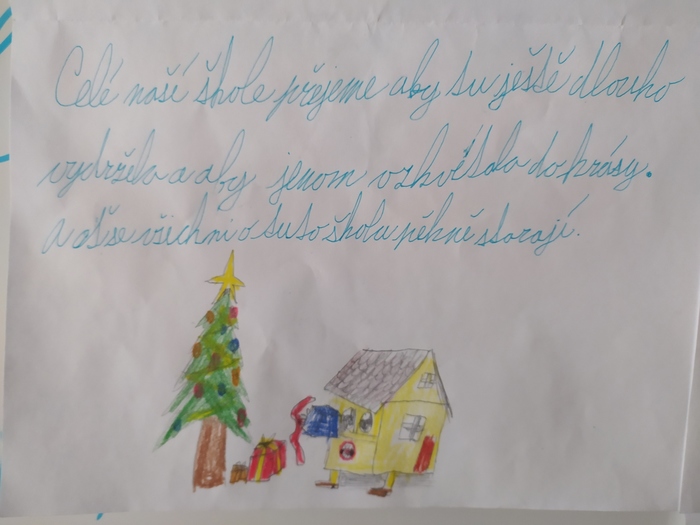 Celé naší škole přejeme aby tu ještě dlouho
vydržela a aby jenom vzkvétala do krásy.
A ať se všichni o tuto školu pěkně starají.